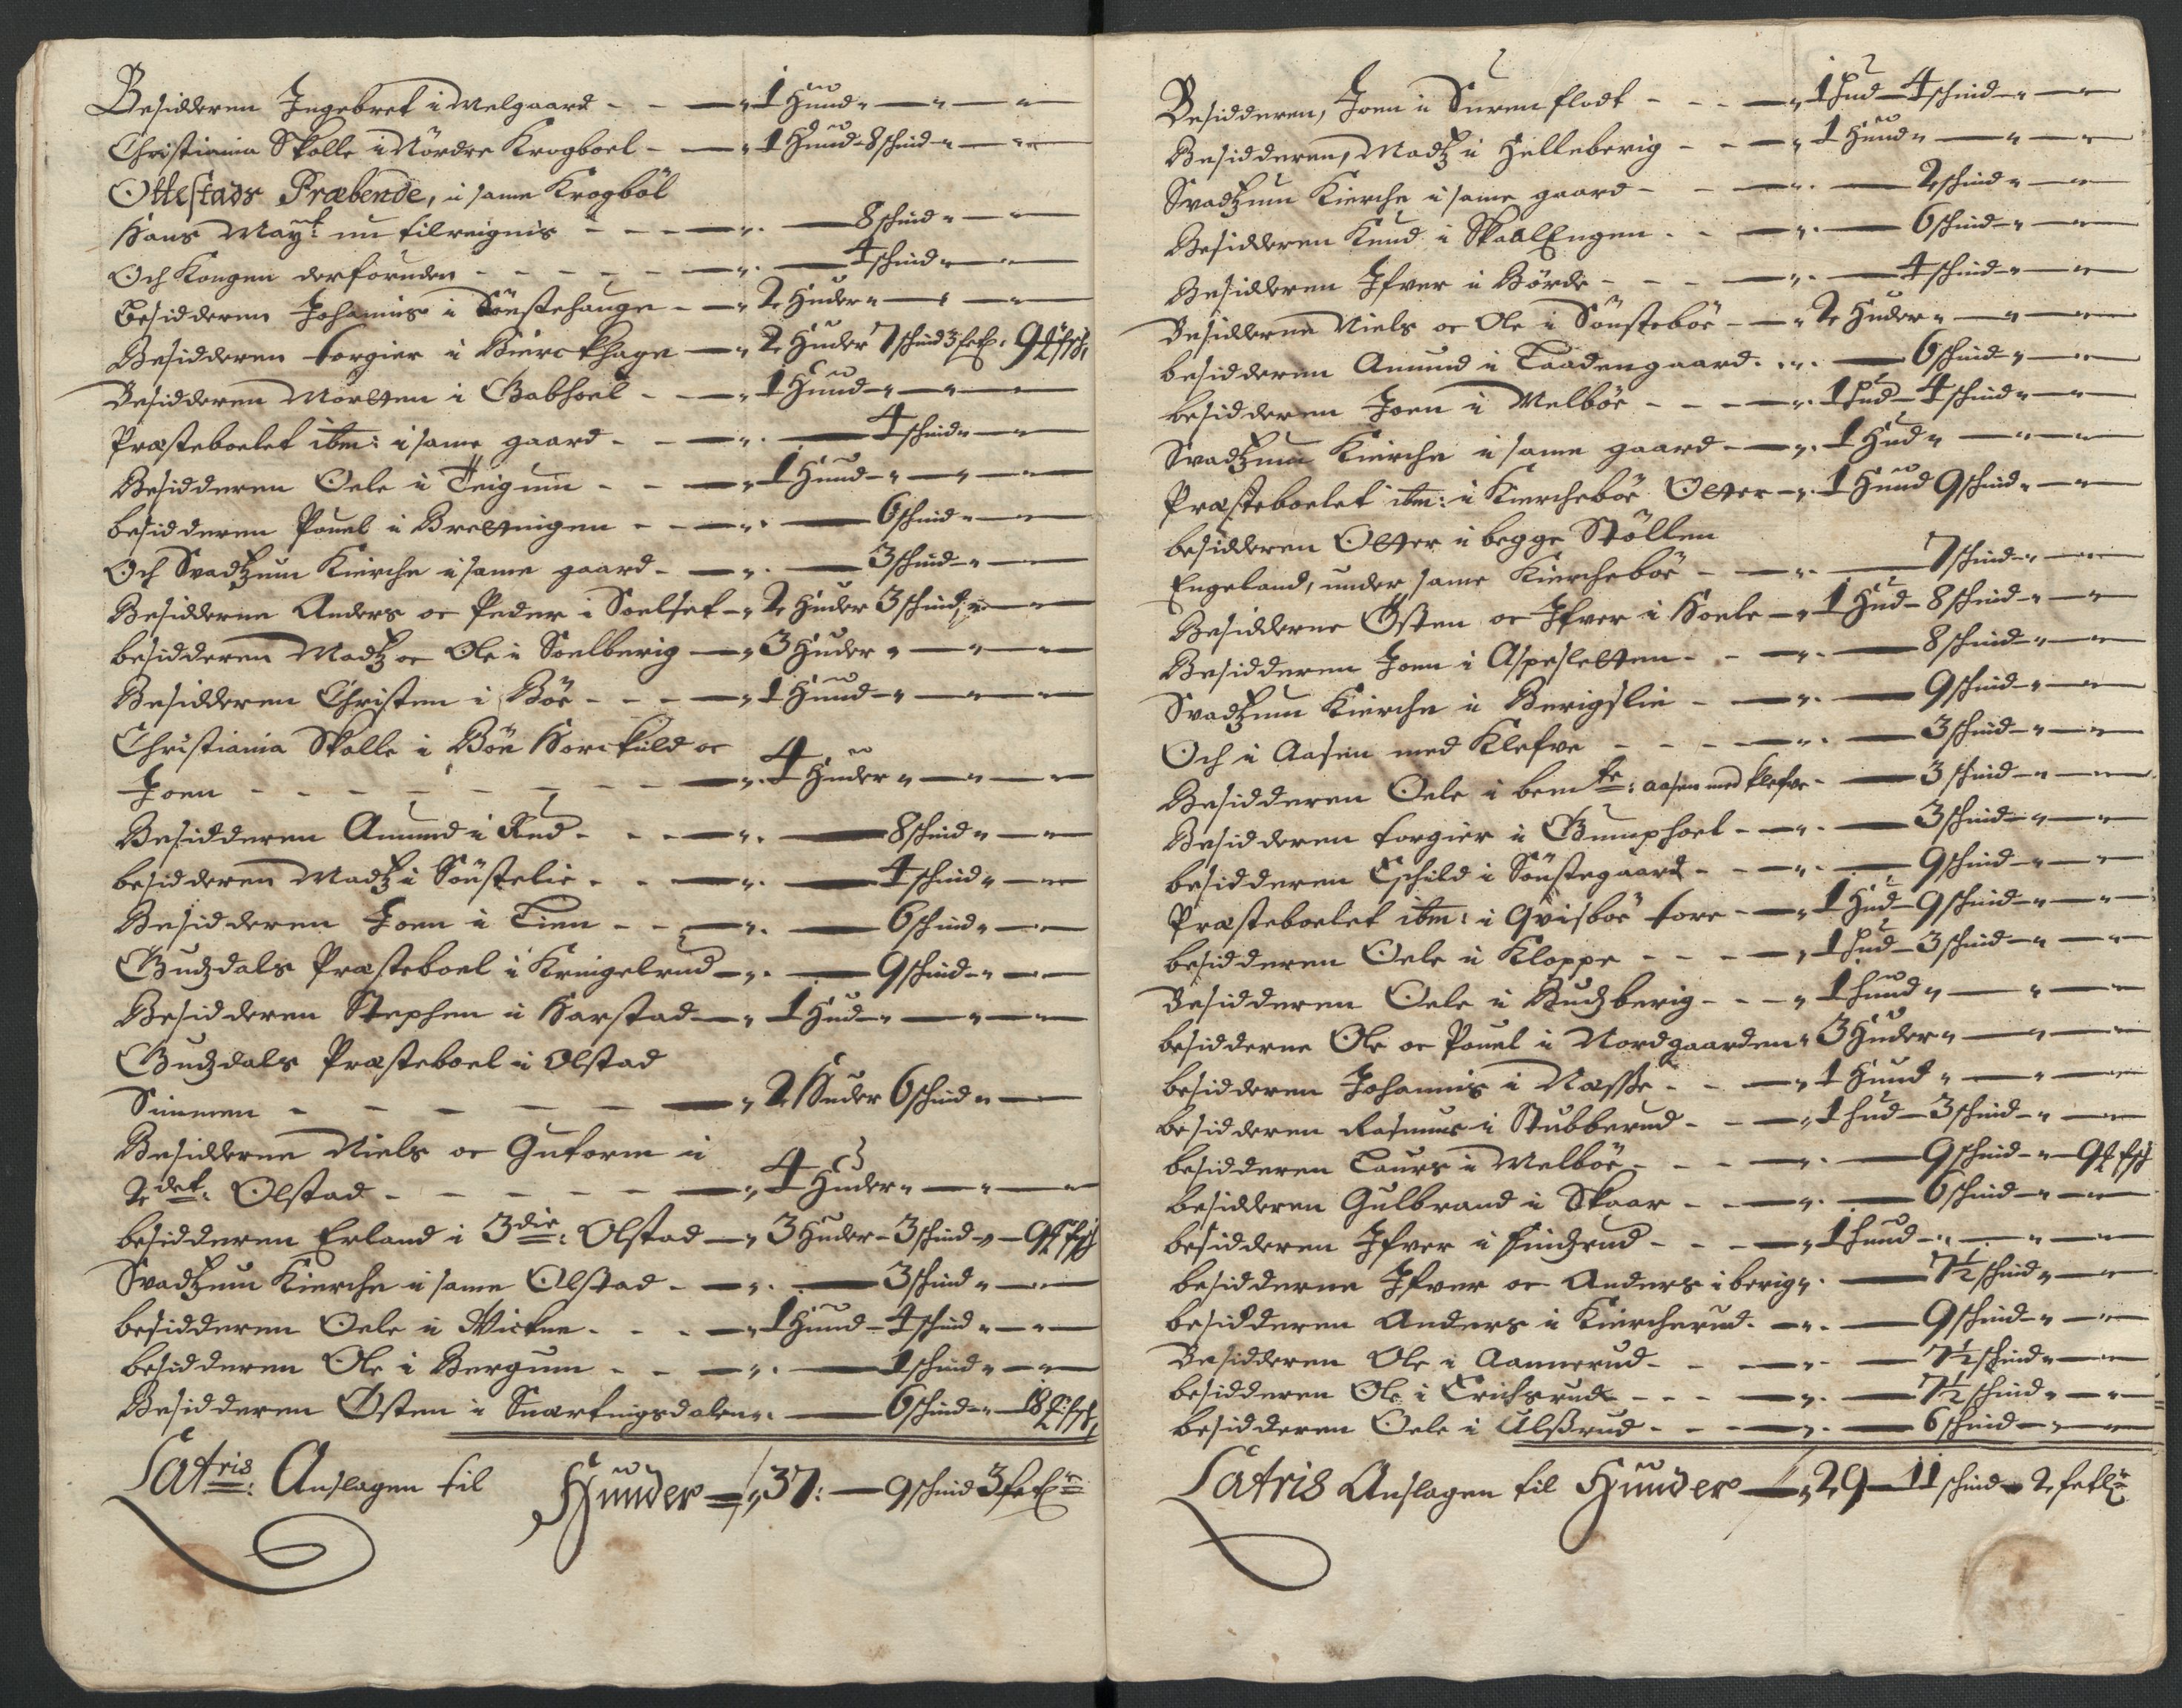 Besidderen Ingebret i Melgaard - - — „ 1 Huud „ — „ — „
Christiania Skolle i Nördre Krogboel - — „ 1 Huud - 8 schind „ — „
Ottestads Præbende, i same Krogböl
Hans Mayt: nu tilreignis - - - — „. — 8 schind „ — „
Och Kongen derforuden - - - - — „. — 4 schind „ — „
Besidderen Johannis i Sönstehauge - — „ 2 Huder „ — „ — „
Besidderen Torgier i Bierckhage — „ 2 Huder 7 schind 3 fetl: 9
Besidderen Mortten i Gabhoel - - — „ 1 Huud - „ — „ — „
Præsteboelet ibm: i same gaard - - — „. — 4 schind „ — „
Besidderen Oele i Teigum - - — „ 1 Huud - „ — „ — „
besidderen Pouel i Brettingen - - — „. — 6 schind „ — „
Och Svadtzum Kierche i same gaard - — „. — 3 schind - „ — „
Besidderne Anders oc Peder i Soelset - „ 2 Huder 3 schind „ — „
besidderen Madtz oc Ole i Soelberig — „ 3 Huder „ — „ — „
Besidderen Christen i Böe - - - — „ 1 Huud - „ — „ — „
Christiania Skolle i Böe Horckild oc
Joen - - - - - - - - — „. 4 Huder „ — „ — „
Besidderen Amund i Rud - - - — „. — 8 schind „ — „
besidderen Madtz i Sönstelie - - — „. — 4 schind „ — „
Besidderen Joen i Lien - - - — „. — 6 schind „ — „
Gudzdals Præsteboel i Kringelrud — „. — 9 schind - „ — „
Besidderen Stephen i Harstad — „ 1 Hud - „ — „ — „
Gudzdals Præsteboel i Olstad
Simmen - - - - - - — „ 2 Huder 6 schind „ — „
Besidderne Niels oc Gutorm i
2det: Olstad - - - - - - — „ 4 Huder „ — „ — „
besidderen Erland i 3die: Olstad — „ 3 Huder - 3 schind - „ — 9
Svadtzum Kierche i same Olstad - — „. — 3 schind „ — „
besidderen Oele i Wickne - - - — „ 1 Huud - 4 schind „ — „
besidderen Ole i Bergum - - - — „. — 1 schind „ — „
Besidderen Östen i Snartingsdalen „. — 6 schind - „ — 18
Latris: Anslagen til Huuder = „ 37: — 9 schind 3 fetl:
Besidderen, Joen i Surenflodt - - - — „ 1 Hud - 4 schind - „ — „
Besidderen, Madtz i Helleberig - - — „ 1 Huud „ — „ — „
Svadtzum Kierche i same gaard - - — „. — 2 schind „ — „
Besidderen Knud i Skaalengen - - — „. — 6 schind - „ — „
Besidderen Ifver i Börde - - - — „. — 4 schind - „ — „
Besidderne Niels oc Ole i Sönsteböe - — „ 2 Huder „ — „ — „
besidderen Amund i Laadengaard - „. — 6 schind - „ — „
besidderen Joen i Melböe - - - — „. 1 Hud - 4 schind „ — „
Svadtzum Kierche i same gaard - — „. 1 Hud „ — „ — „
Præsteboelet ibm: i Kiercheböe Otter - „. 1 Huud 9 schind „ — „
besidderen Otter i begge Stöllen
Engeland, under same Kiercheböe - — „. — 7 schind - „ — „
Besidderne Östen oc Ifver i Hoele - „ 1 Hud - 8 schind - „ — „
Besidderen Joen i Aspesletten - - — „. — 8 schind - „ — „
Svadtzum Kierche i Berigslie - — „. — 9 schind - „ — „
Och i Aasen med Klefve - - - — „. — 3 schind - „ — „
Besidderen Oele i bemte: aasen med klefve - — 3 schind - „ — „
Besidderen Torgier i Gumphoel - — „. — 3 schind - „ — „
besidderen Eschild i Sönstegaard - - — „. — 9 schind - „ — „
Præsteboelet ibm: i Qvisböe Tore - — „ 1 Hud - 9 schind - „ — „
besidderen Oele i Kloppe - - - — „ 1 Hud - 3 schind - „ — „
Besidderen Oele i Rudzberig - - - „ 1 huud „ — „ — „
besidderne Ole oc Pouel i Nordgaarden „ 3 Huder „ — „ — „
besidderen Johannis i Næsse - - — „ 1 Huud „ — „ — „
besidderen Rasmus i Stubberud - - — „ 1 hud - 3 schind - „ — „
besidderen Laurs i Melböe - - - — „. — 9 schind - „ — 9
besidderen Gulbrand i Skaar - - — „. — 6 schind - „ — „
besidderen Ifver i Findzrud - - - — „ 1 huud - „ — „ — „
besidderne Ifver oc Anders i berig „. — 7½ schind „ — „
besidderen Anders i Kiercherud - — „. — 9 schind - „ — „
Besidderen Ole i Aannerud - - - — „. — 7½ schind „ — „
besidderen Ole i Erichsrud - - - — „. — 7½ schind „ — „
besidderen Oele i Ulssrud - - — „. — 6 schind - „ — „
Latris Anslagen til Huuder — „ 29 — 11 schind - 2 fetl: